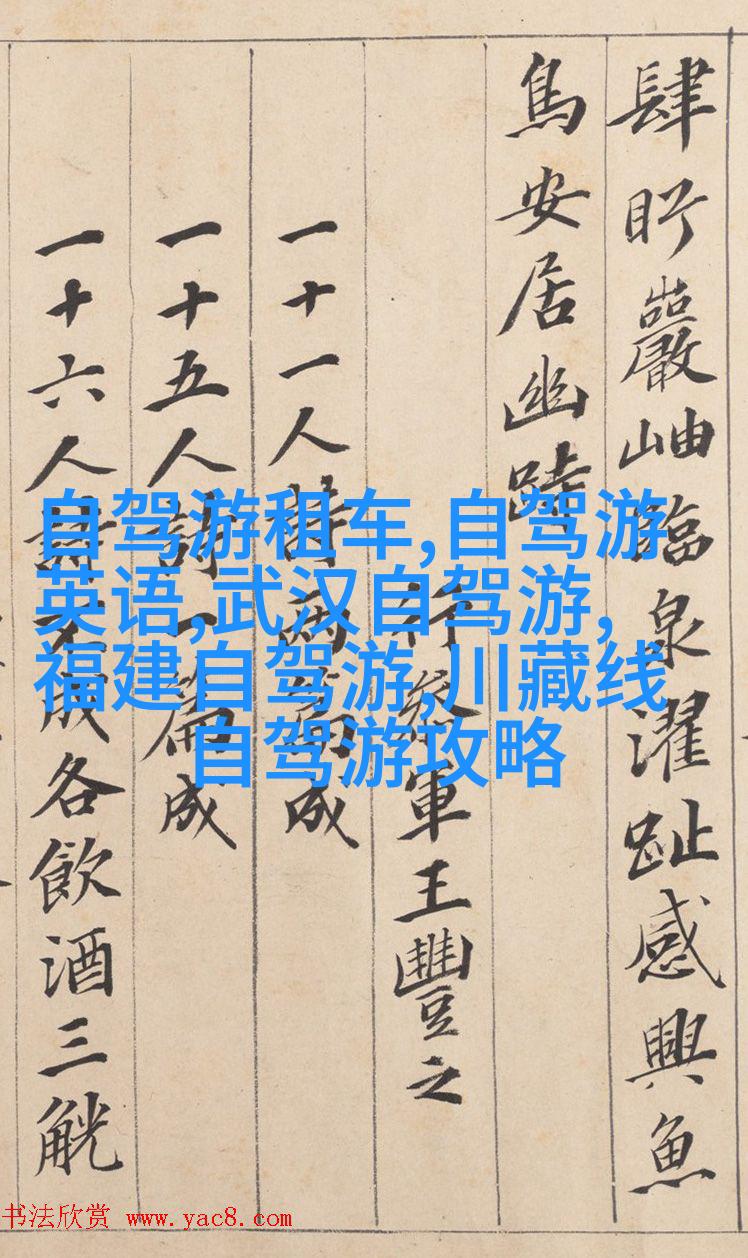 肆盱巖岫臨泉濯趾感興魚
鳥安居幽跱
行參軍王豐之
一十一人詩兩篇成
一十五人詩一篇成
一十六人詩不成各飲酒三觥
自驾游租车,自驾游
英语,武汉自驾游,
福建自驾游,川藏线
自驾游攻略
书法欣赏 www.yac8.com